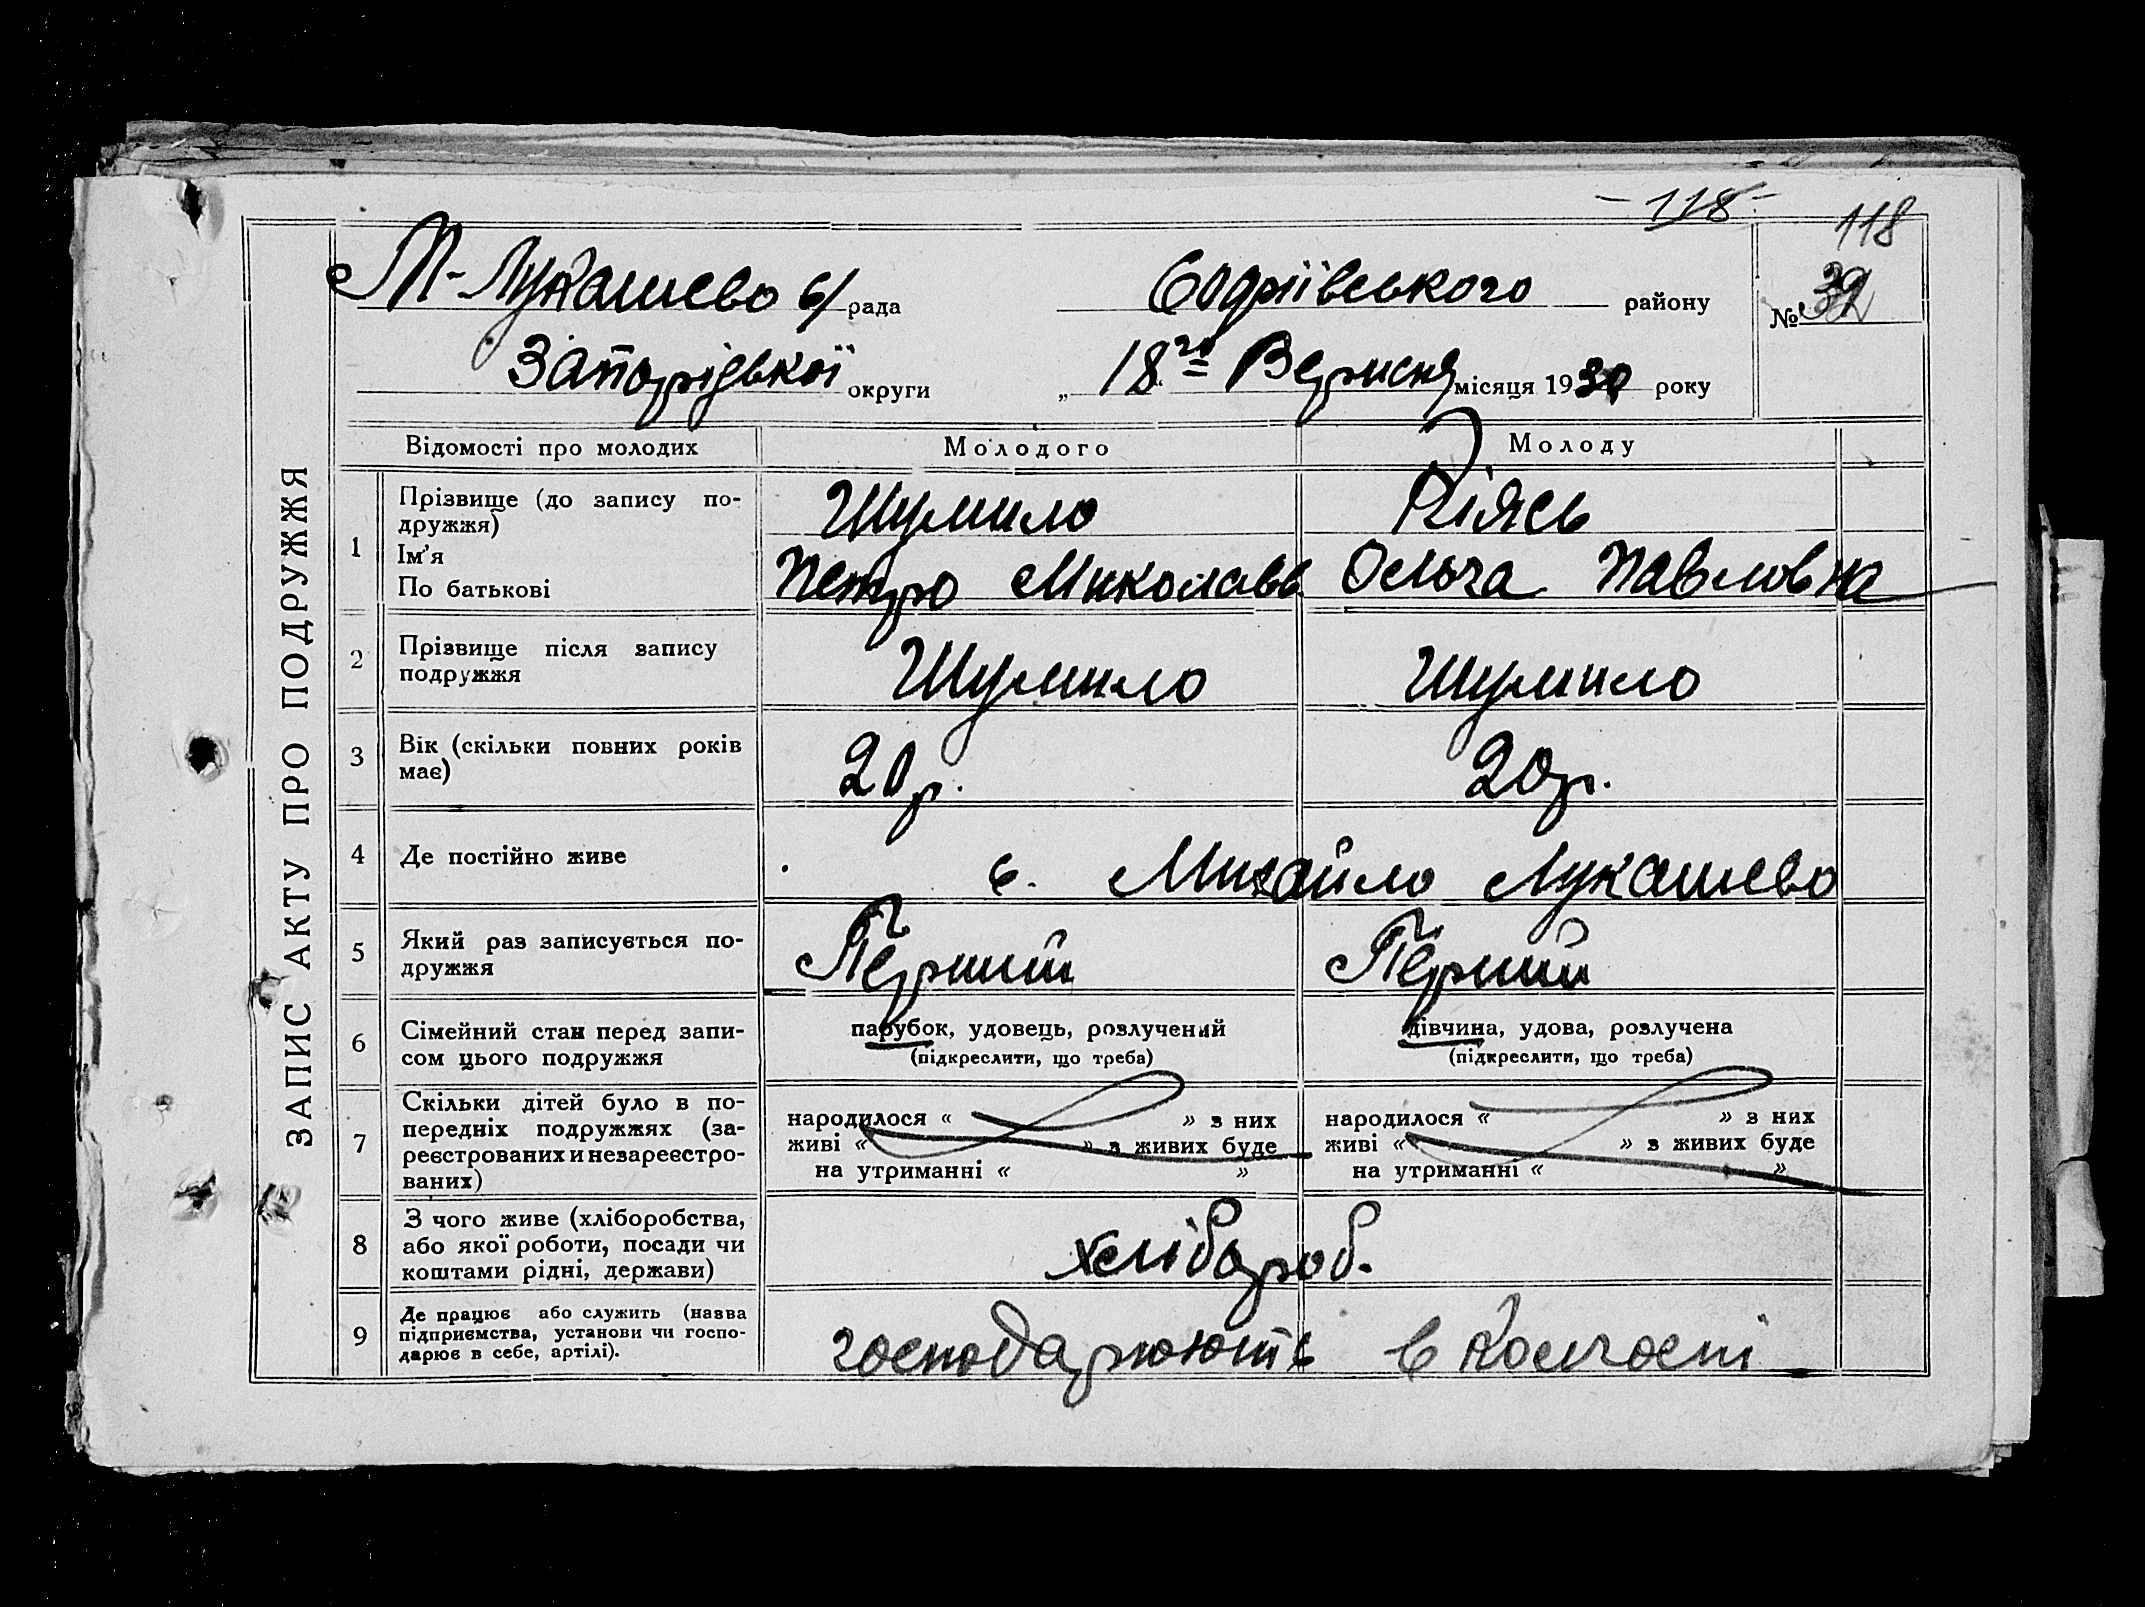 -118-
118
М-Лукашево с/рада Софіївського району №39
Запорізької округи „ 18го Вересня місяця 1930 року
ЗАПИС АКТУ ПРО ПОДРУЖЖЯ
Відомості про молодих Молодого Молоду
1 Прізвище (до запису по-
дружжя) Шумило Різясь
Ім'я
По батькові Петро Миколаєв Ольга Павловна
2 Прізвище після запису
подружжя Шумило Шумило
3 Вік (скільки повних років
має) 20 р. 20 р.
4 Де постійно живе с. Михайло Лукашево
5 Який раз записується по-
дружжя Перший Перший
6 Сімейний стан перед запи-
сом цього подружжя
парубок, удовець, розлучений
(підкреслити, що треба)
дівчина, удова, розлучена
(підкреслити, що треба)
7 Скільки дітей було в по-
передніх подружжях (за-
реєстрованих и незареєстро-
ваних)
народилося « » з них
живі « » з живих буде
на утриманні « »
народилося « » з них
живі « » з живих буде
на утриманні « »
8 З чого живе (хліборобства,
або якої роботи, посади чи
коштами рідні, держави)
хлібороб.
9 Де працює або служить (назва
підприємства, установи чи госпо-
дарює в себе, артілі).
господарюють в колгоспі